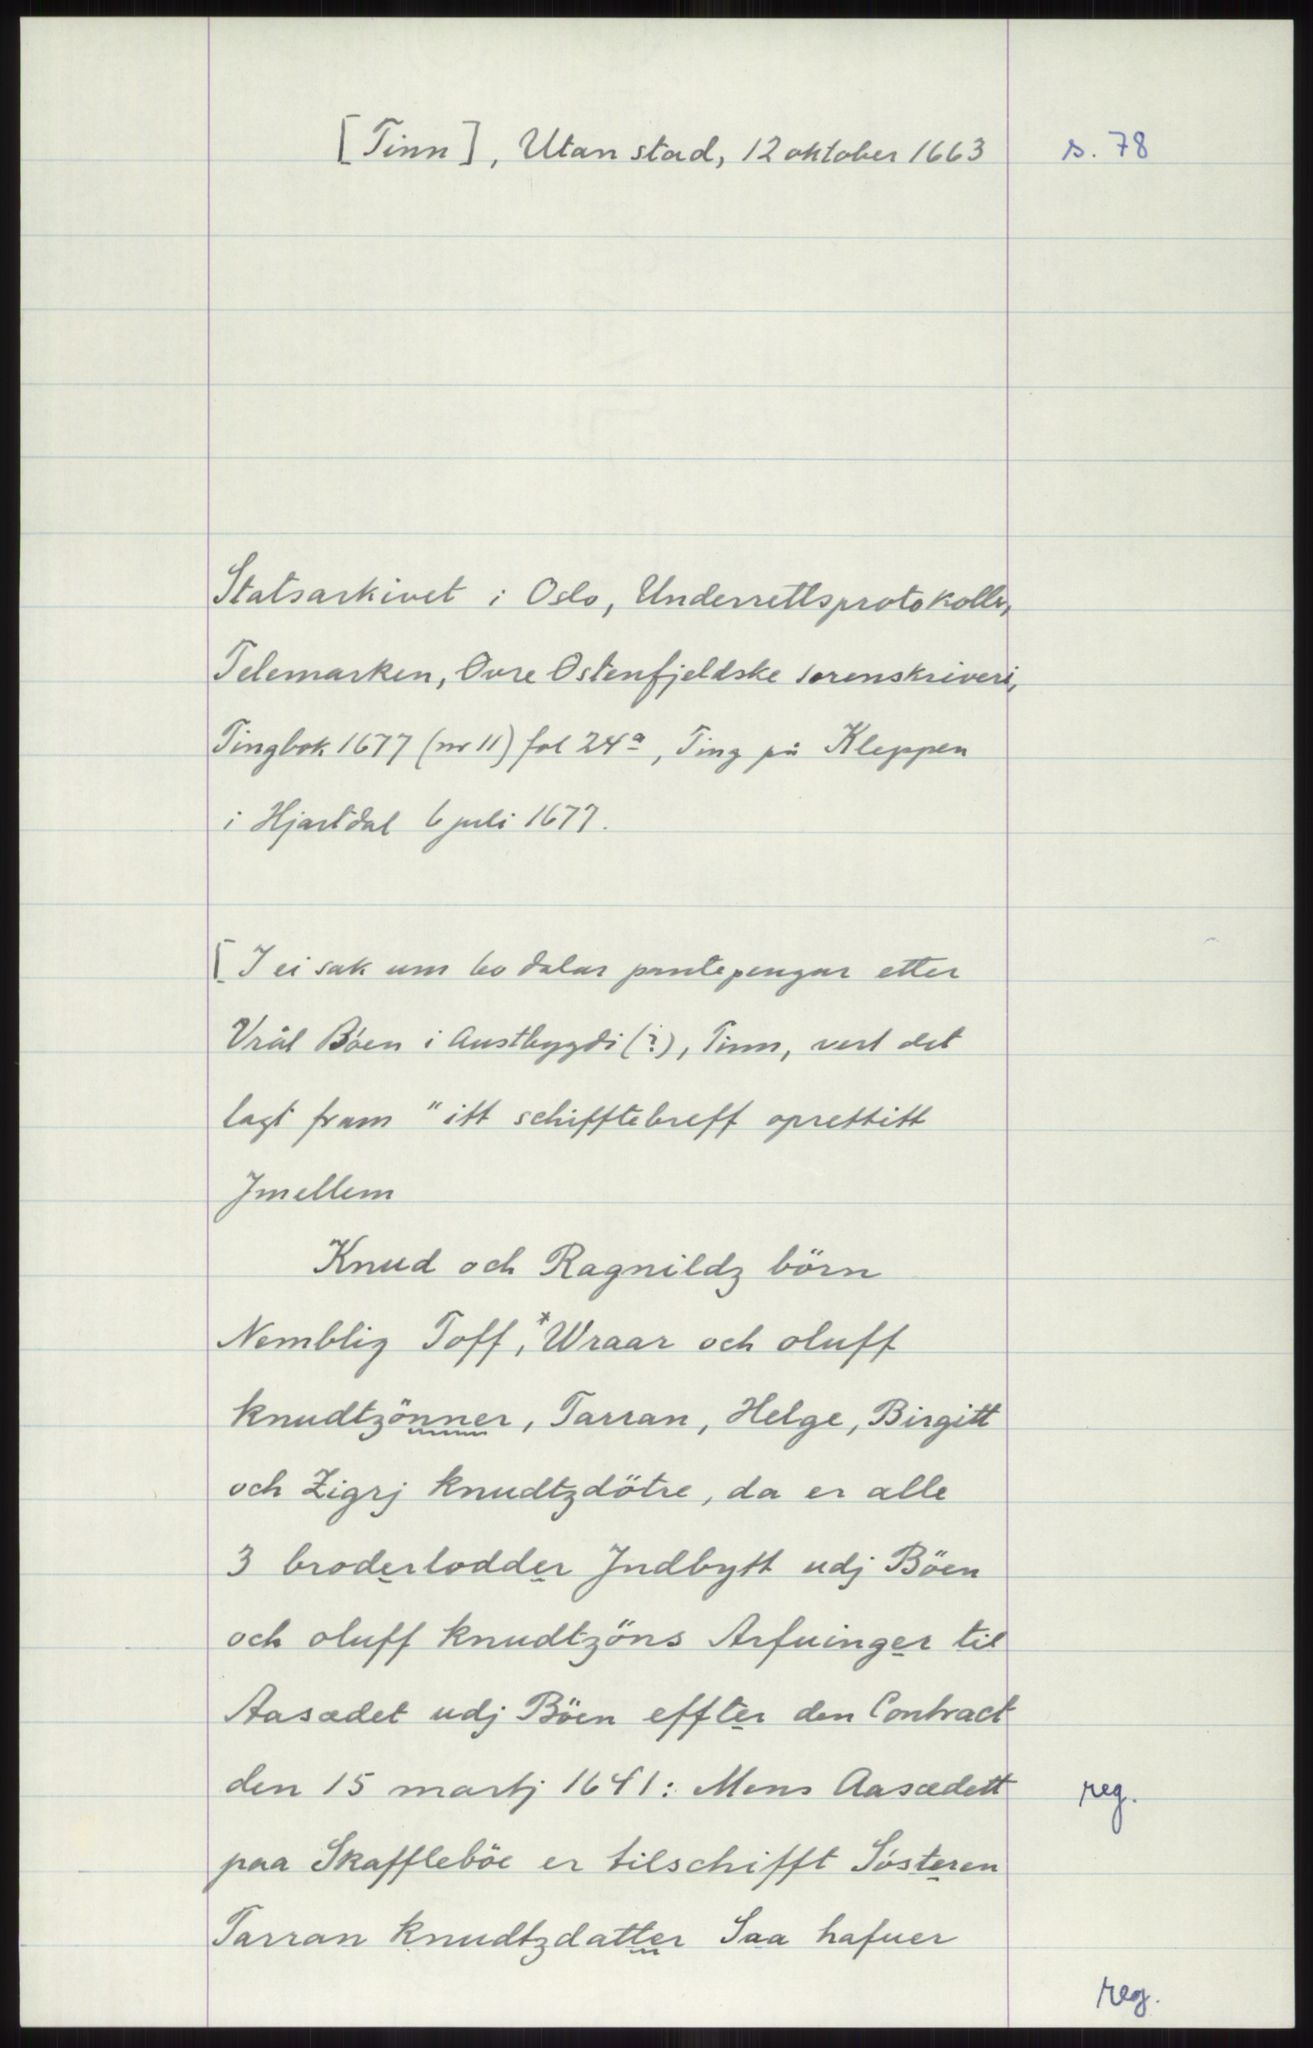 [Tinn], Utan stad, 12 oktober 1663
s. 78
Statsarkivet i Oslo, Underrettsprotokoller,
Telemarken, Øvre Østenfjeldske sorenskriveri,
Tingbok 1677 (nr 11) fol 24a, Ting på Kleppen
i Hjartdal 6 juli 1677.
[I ei sak um 60 dalar pantepengar etter
Vrål Böen i Austbygdi (?), Tinn, vert det
lagt fram "itt schifftebreff oprettitt
Jmellem
Knud och Ragnildz börn
Nemblig Toff,* Wraar och oluff
knudtzönner, Tarran, Helge, Birgitt
och Zigrj knudtzdötre, da er alle
3 broderlodder Jndbytt udj Böen
och oluff knudtzöns Arfuinger til
Aasædet udj Böen effter den Contract
den 15 martj 1641: Mens Aasædett
reg.
paa Skaffleböe er tilschifft Sösteren
Tarran knudtzdatter Saa hafuer
reg.